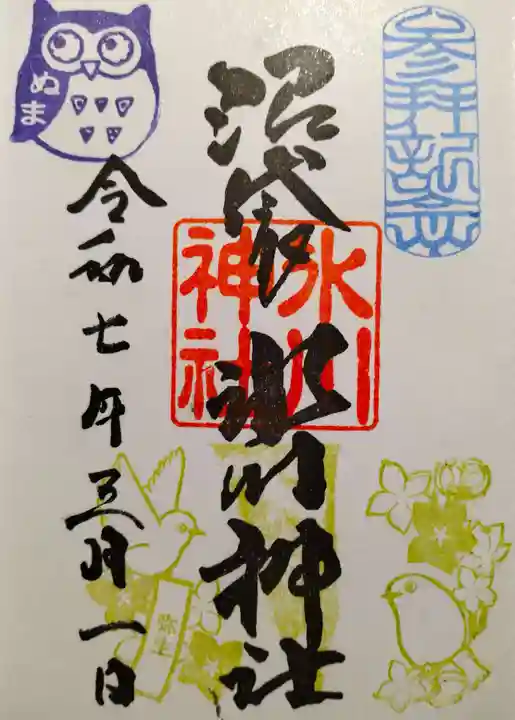 参拝記念
沼袋 氷川神社
氷川
神社
ぬま
令和七年三月一日
弥生